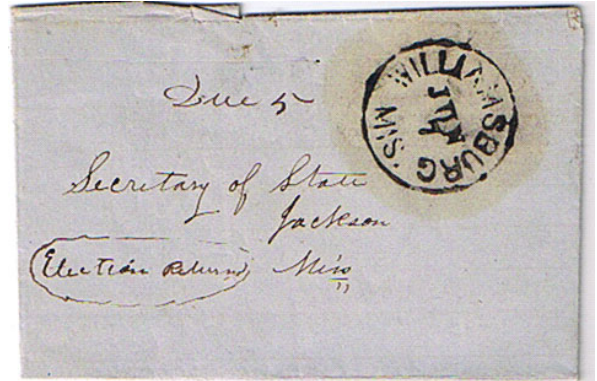 Due 5
WILLIAMSBURG MIS.
JUL
Secretary of State
Jackson
Election Returns Miss